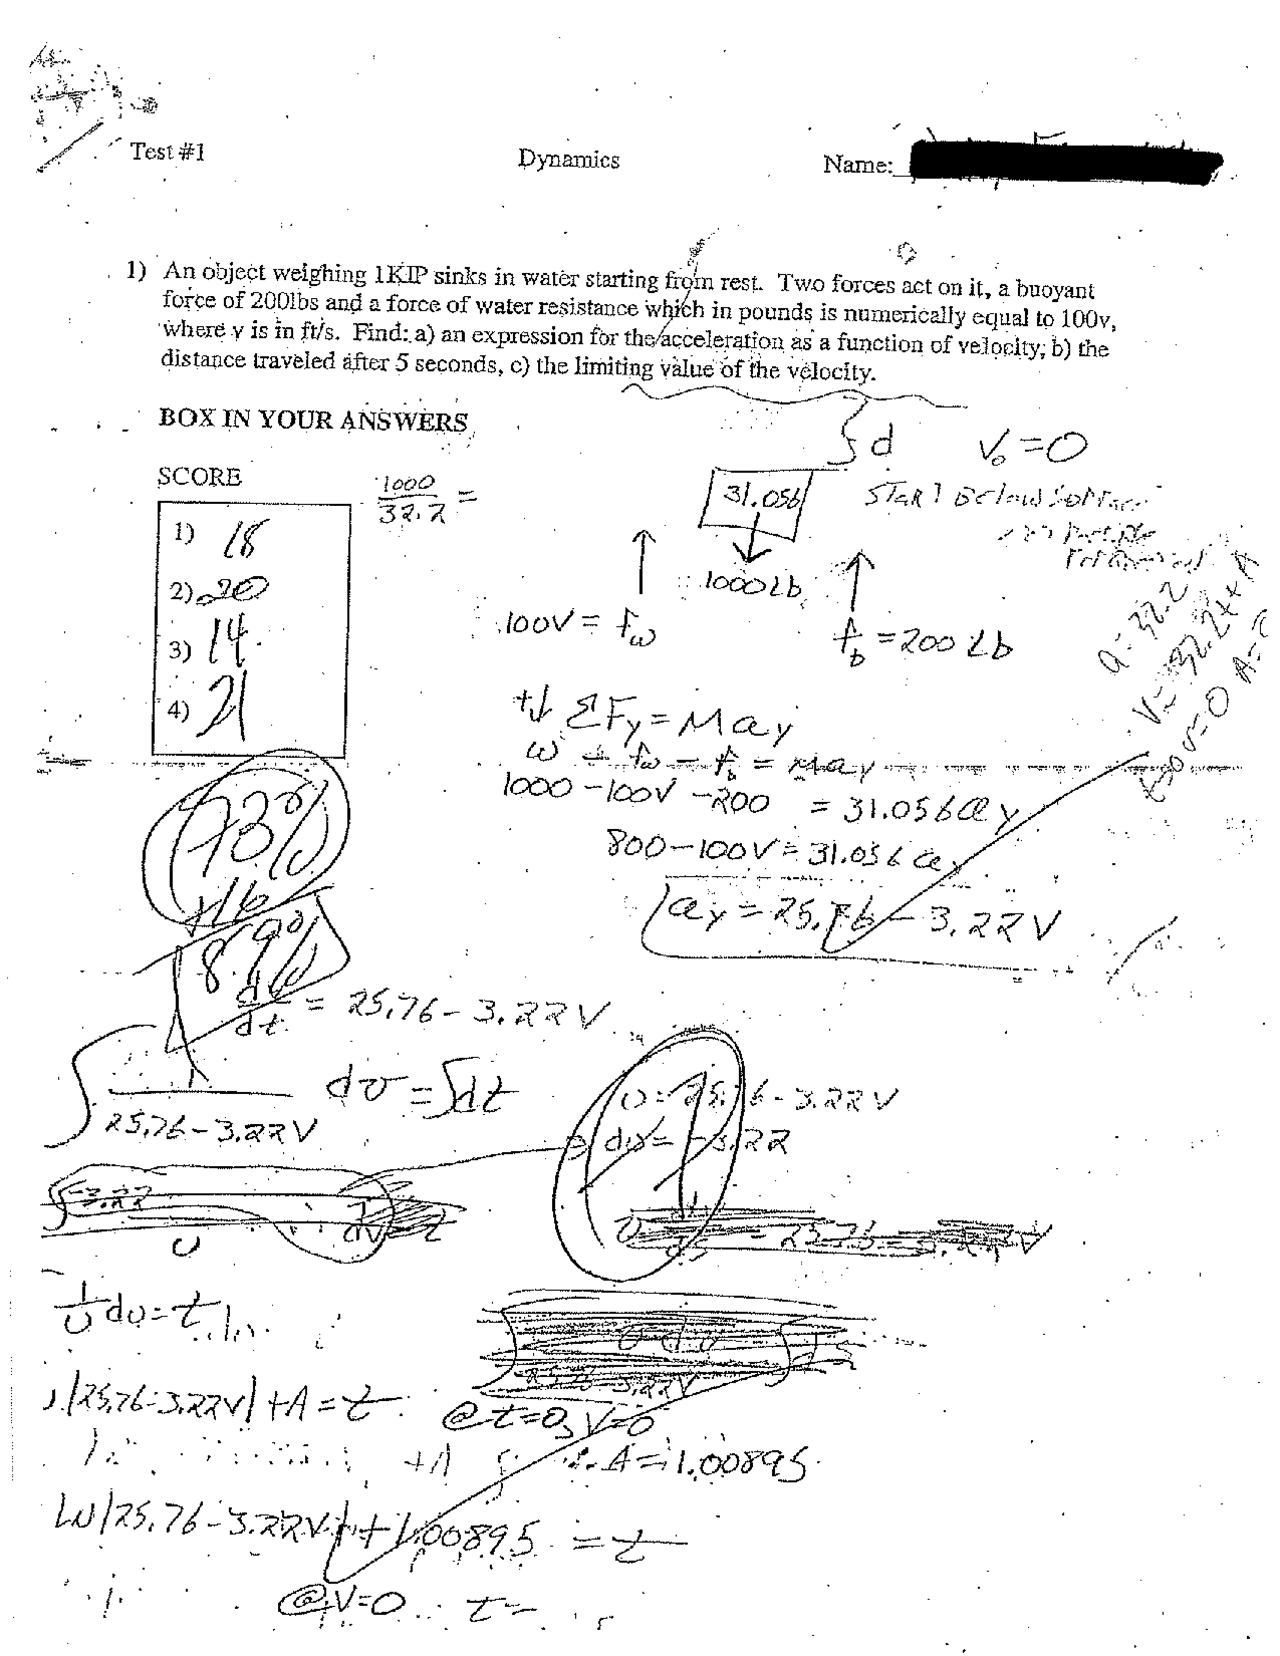 Test #1 Dynamics Name:
1) An object weighing 1KIP sinks in water starting from rest. Two forces act on it, a buoyant
force of 200lbs and a force of water resistance which in pounds is numerically equal to 100v,
where v is in ft/s. Find: a) an expression for the acceleration as a function of velocity, b) the
distance traveled after 5 seconds, c) the limiting value of the velocity.
BOX IN YOUR ANSWERS
d V₀=0
SCORE
1000/32.2 =
31.056
START Below
1) 18
2) 20
3) 14
4) 21
1000Lb
100V = fw
fb = 200 Lb
a=32.2
V=32.2t+A
t=0 v=0 A=0
+↓ ΣFy = May
w + fw - fb = may
1000 - 100V - 200 = 31.056 ay
800 - 100V = 31.056 ay
ay = 25.76 - 3.22V
73%
+16
89%
dv/dt = 25.76 - 3.22V
∫ 1/(25.76 - 3.22V) dv = ∫dt
U = 25.76 - 3.22V
du = -3.22
1/U du = t
|25.76-3.22V| + A = t
@ t=0, V=0
+A
∴ A = 1.00895
LN|25.76 - 3.22V| + 1.00895 = t
@ V=0 t=